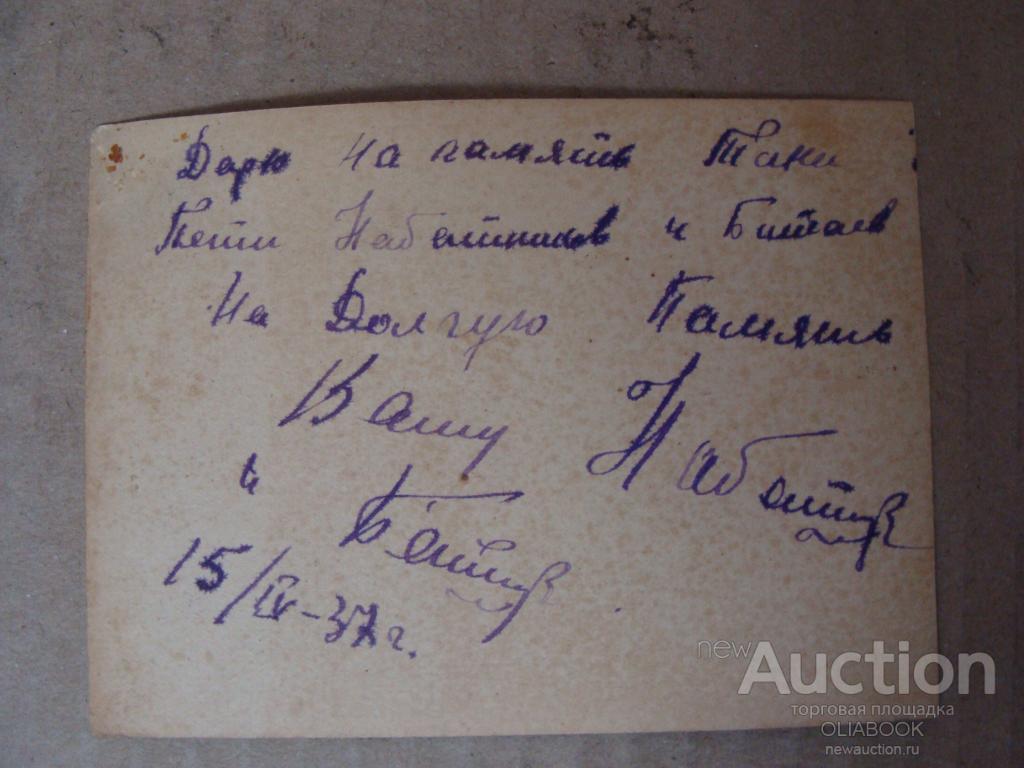 Дарю На память Тани и
Пети Набатников и Битаев
На Долгую Память
Вашу Набатник
и
15/IV-37г.
new Auction
торговая площадка
OLIABOOK
newauction.ru